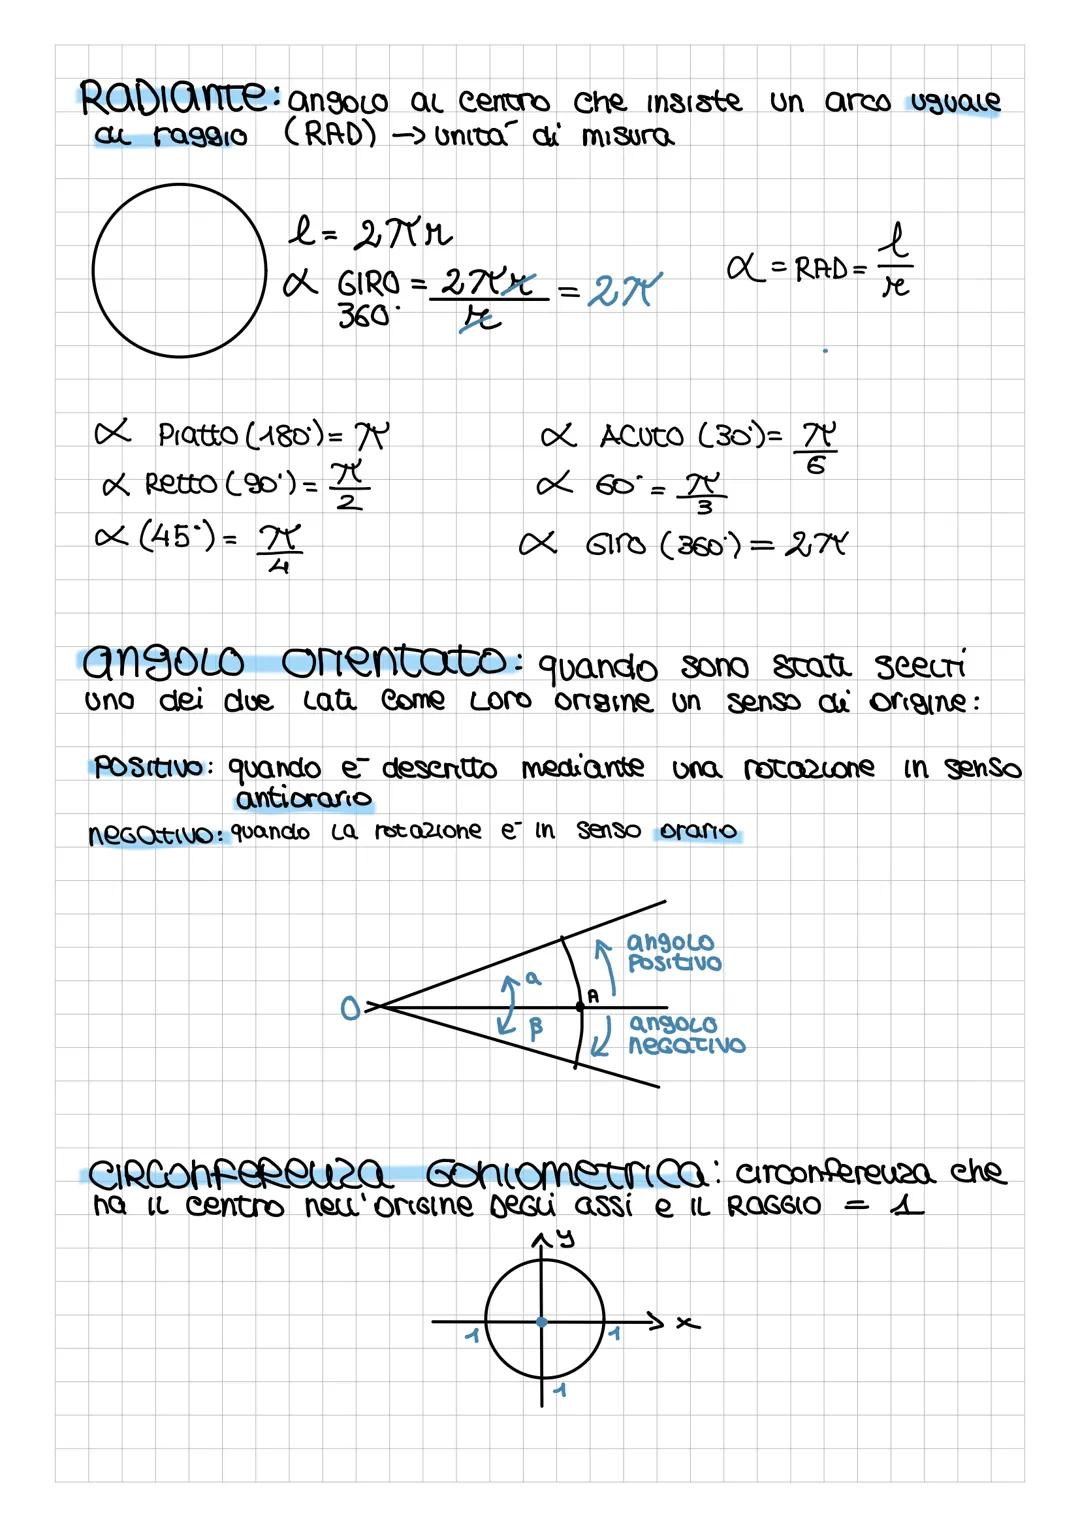 RADIANTE: angolo al centro che insiste un arco uguale
al raggio (RAD) → unità di misura
l = 2πr
α GIRO 360° = 2πr/r = 2π
α = RAD = l/r
α Piatto (180°) = π
α Retto (90°) = π/2
α (45°) = π/4
α ACUTO (30°) = π/6
α 60° = π/3
α GIRO (360°) = 2π
angolo orientato: quando sono stati scelti
uno dei due lati come loro origine un senso di origine:
POSITIVO: quando è descritto mediante una rotazione in senso
antiorario
NEGATIVO: quando la rotazione è in senso orario
angolo
POSITIVO
a
O
A
β
angolo
NEGATIVO
CIRCONFERENZA GONIOMETRICA: circonferenza che
ha il centro nell'origine degli assi e il RAGGIO = 1
y
x
1
1
1